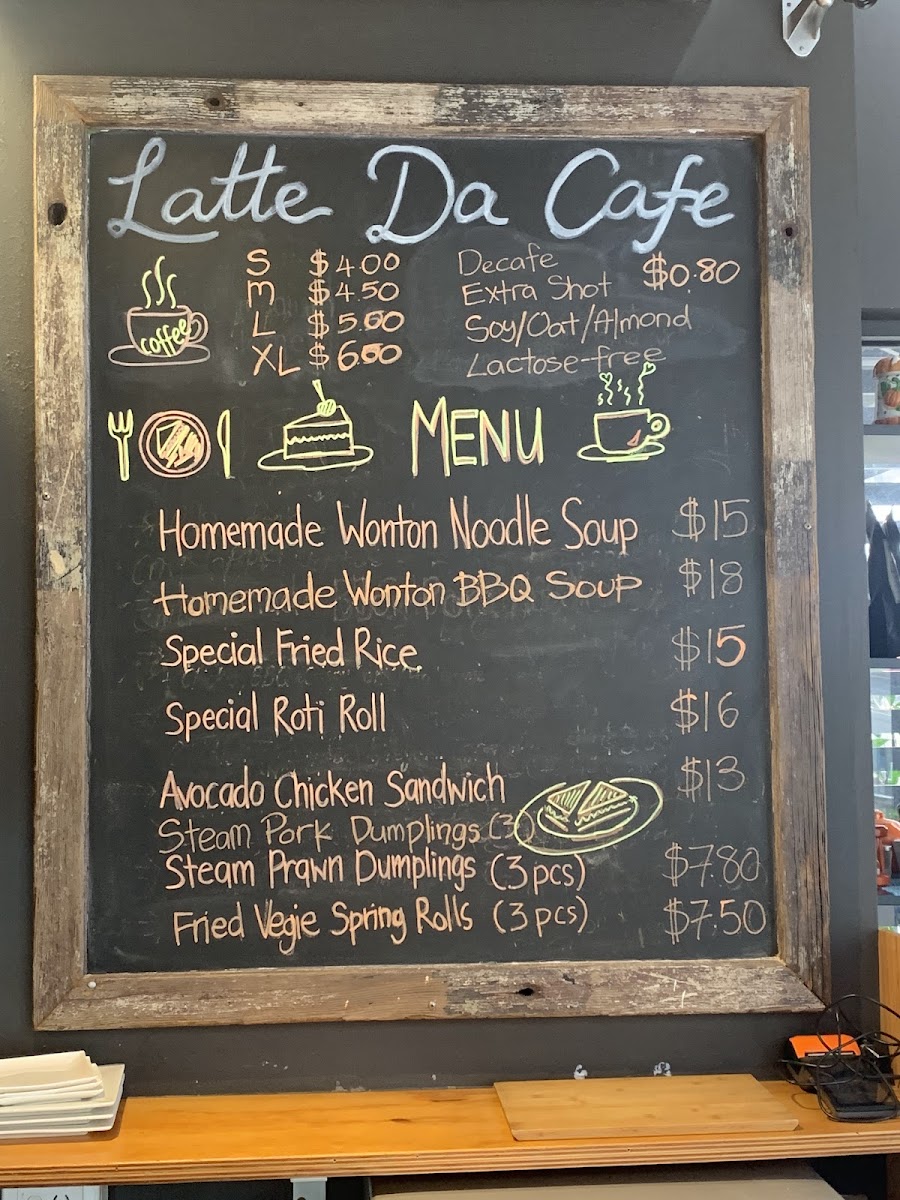 Latte Da Cafe
coffee
S $4.00
M $4.50
L $5.00
XL $6.00
Decafe
Extra Shot $0.80
Soy/Oat/Almond
Lactose-free
MENU
Homemade Wonton Noodle Soup $15
Homemade Wonton BBQ Soup $18
Special Fried Rice $15
Special Roti Roll $16
Avocado Chicken Sandwich $13
Steam Pork Dumplings (3)
Steam Prawn Dumplings (3pcs) $7.80
Fried Vegie Spring Rolls (3pcs) $7.50